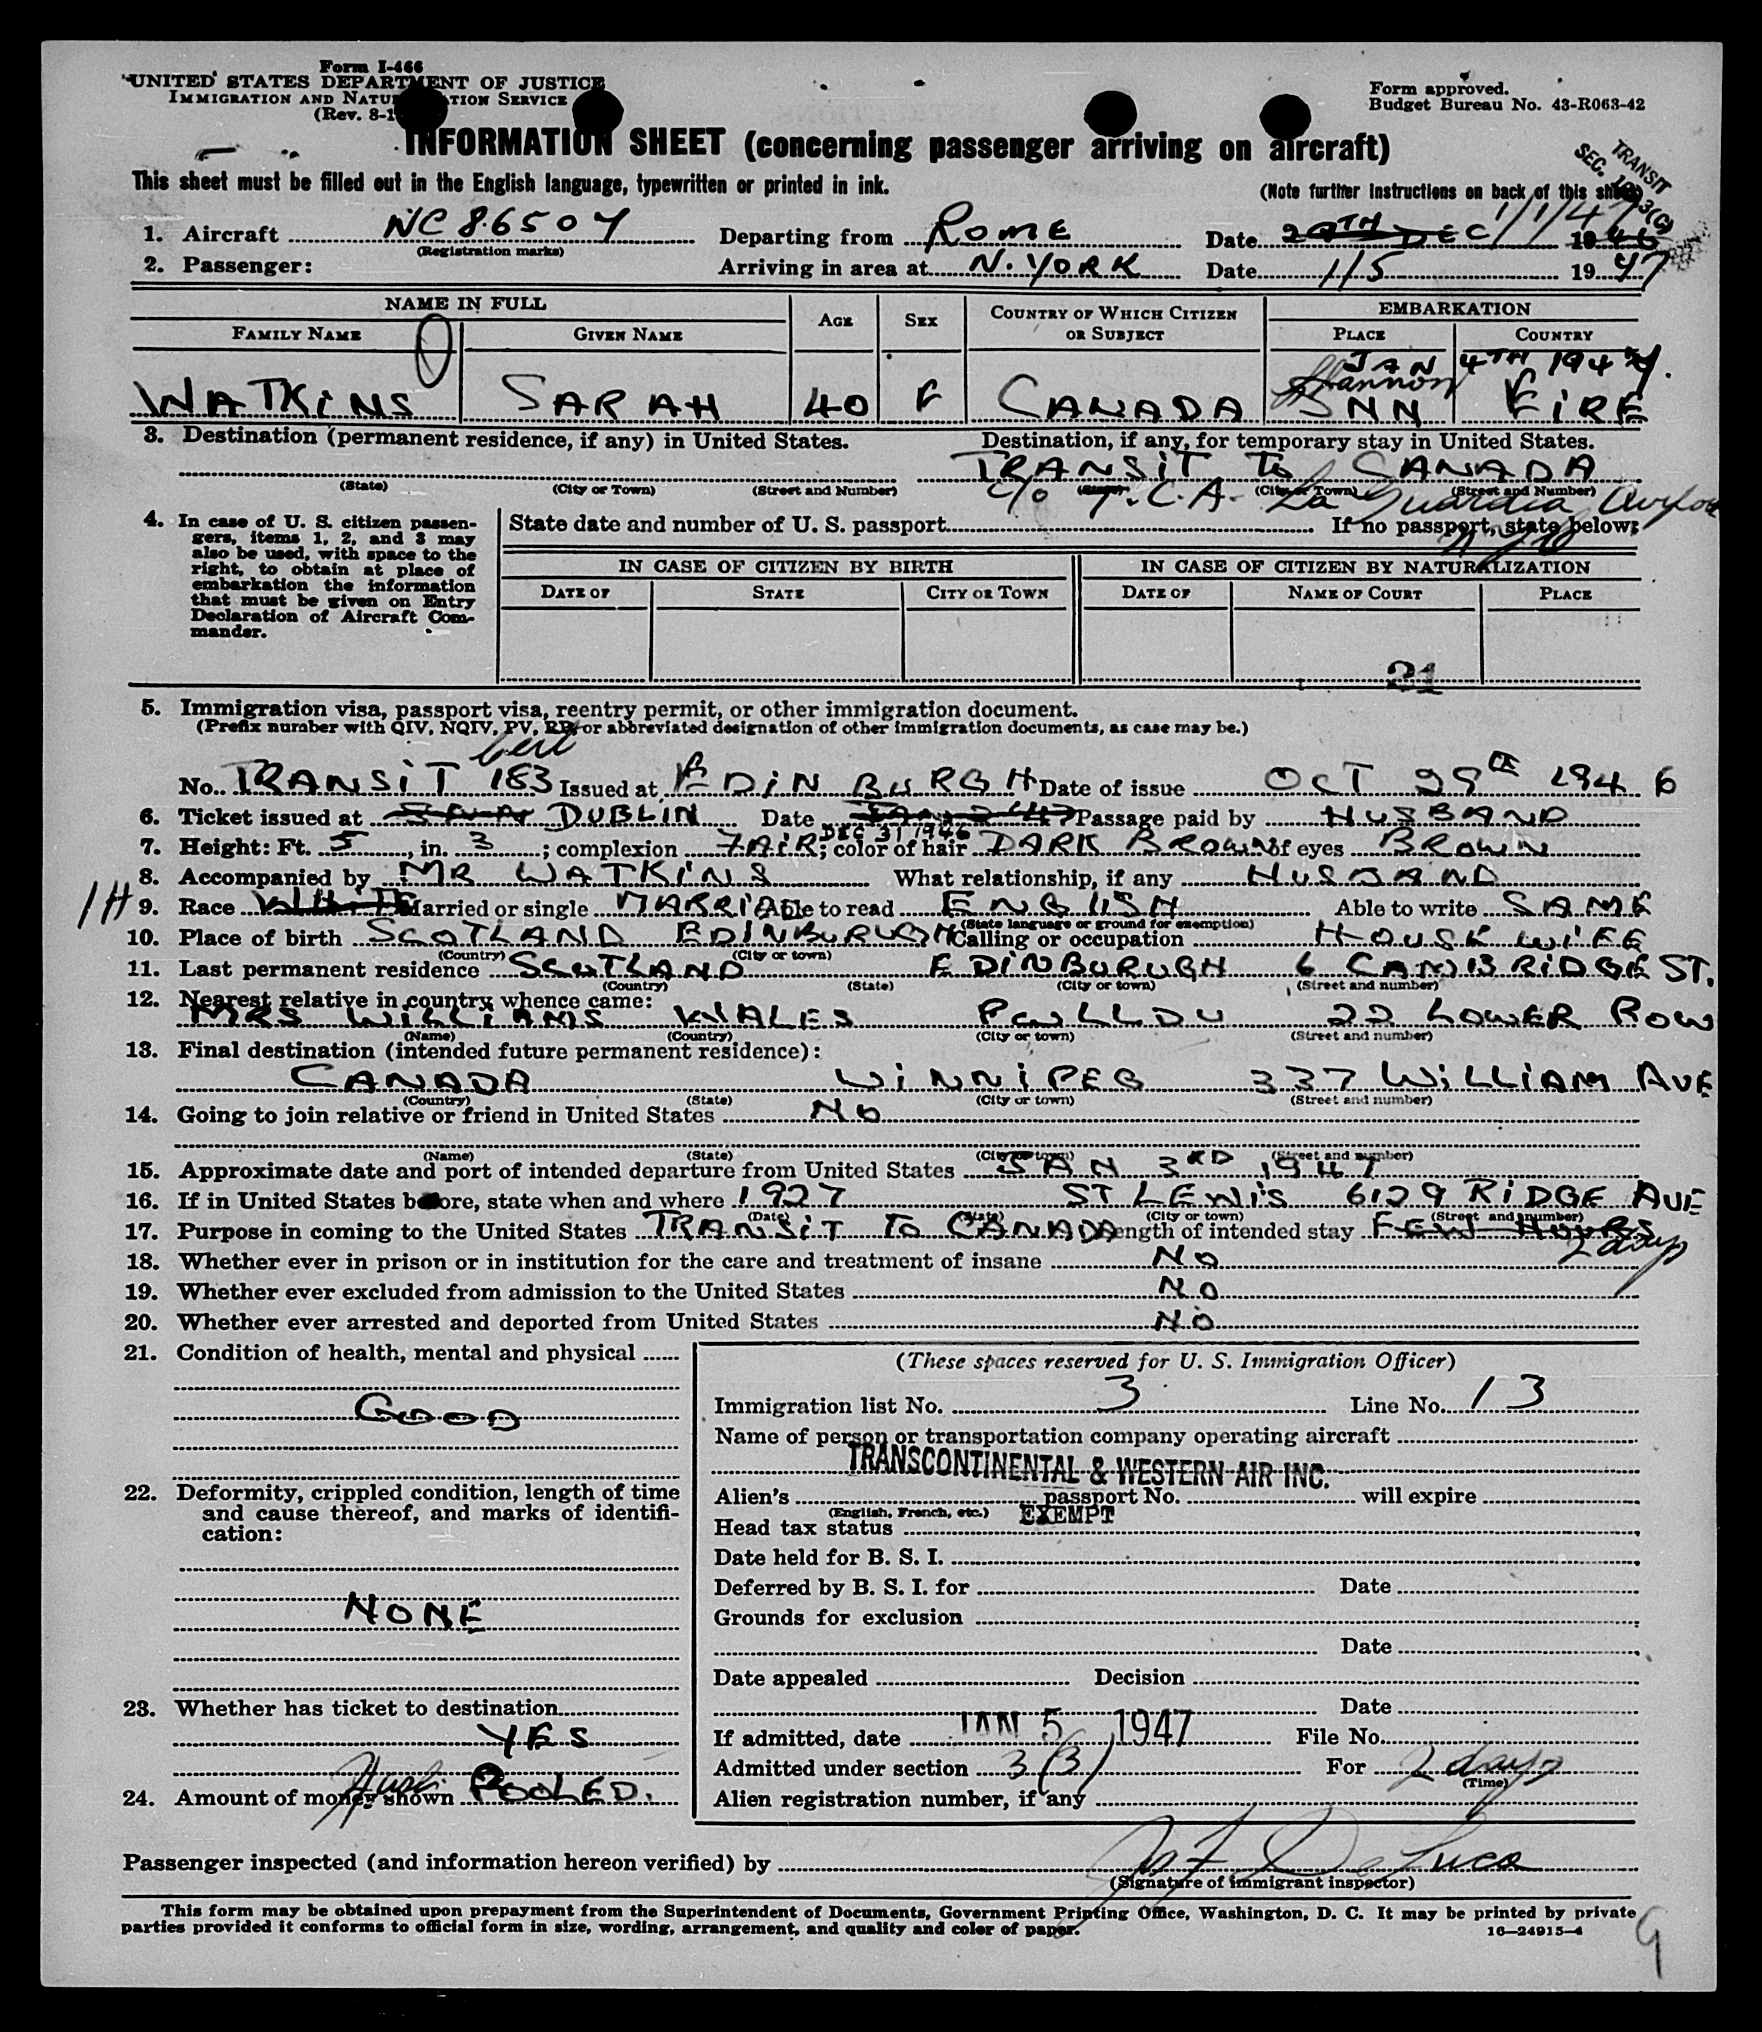 Form I-466
UNITED STATES DEPARTMENT OF JUSTICE
IMMIGRATION AND NATU TION SERVICE
(Rev. 8-1
Form approved.
Budget Bureau No. 43-R063-42
INFORMATION SHEET (concerning passenger arriving on aircraft)
TRANSIT
SEC.
This sheet must be filled out in the English language, typewritten or printed in ink.
(Note further instructions on back of this sheet)
1. Aircraft NC 86507 Departing from ROME Date 29TH DEC 1/1/47 1946
(Registration marks)
2. Passenger: Arriving in area at N. YORK Date 1/5 1947
NAME IN FULL AGE SEX COUNTRY OF WHICH CITIZEN OR SUBJECT EMBARKATION
FAMILY NAME GIVEN NAME PLACE COUNTRY
JAN 4TH 1947.
Shannon
WATKINS SARAH 40 F CANADA SNN EIRE
3. Destination (permanent residence, if any) in United States. Destination, if any, for temporary stay in United States.
TRANSIT TO CANADA
(State) (City or Town) (Street and Number) (State) (City or Town) (Street and Number)
c/o T.C.A. La Guardia
4. In case of U. S. citizen passen-
gers, items 1, 2, and 3 may
also be used, with space to the
right, to obtain at place of
embarkation the information
that must be given on Entry
Declaration of Aircraft Com-
mander.
State date and number of U. S. passport If no passport, state below:
IN CASE OF CITIZEN BY BIRTH IN CASE OF CITIZEN BY NATURALIZATION
DATE OF STATE CITY OR TOWN DATE OF NAME OF COURT PLACE
21
5. Immigration visa, passport visa, reentry permit, or other immigration document.
(Prefix number with QIV, NQIV, PV, RP, or abbreviated designation of other immigration documents, as case may be.)
cert
No. TRANSIT 183 Issued at EDINBURGH Date of issue OCT 29TH 1946
6. Ticket issued at SNN DUBLIN Date DEC 31 1946 Passage paid by HUSBAND
7. Height: Ft. 5, in. 3; complexion FAIR; color of hair DARK BROWN of eyes BROWN
8. Accompanied by MR WATKINS What relationship, if any HUSBAND
1H 9. Race WHITE Married or single MARRIED Able to read ENGLISH Able to write SAME
(State language or ground for exemption)
10. Place of birth SCOTLAND EDINBURGH Calling or occupation HOUSE WIFE
(Country) (City or town)
11. Last permanent residence SCOTLAND EDINBURUGH 6 CAMBRIDGE ST.
(Country) (State) (City or town) (Street and number)
12. Nearest relative in country whence came:
MRS WILLIAMS WALES PWLLDU 22 LOWER ROW
(Name) (Country) (City or town) (Street and number)
13. Final destination (intended future permanent residence):
CANADA WINNIPEG 337 WILLIAM AVE
(Country) (State) (City or town) (Street and number)
14. Going to join relative or friend in United States NO
(Name) (State) (City or town) (Street and number)
15. Approximate date and port of intended departure from United States JAN 3RD 1947
16. If in United States before, state when and where 1927 ST LEWIS 6129 RIDGE AVE
(Date) (State) (City or town) (Street and number)
17. Purpose in coming to the United States TRANSIT TO CANADA Length of intended stay FEW HOURS
2 days
18. Whether ever in prison or in institution for the care and treatment of insane NO
19. Whether ever excluded from admission to the United States NO
20. Whether ever arrested and deported from United States NO
21. Condition of health, mental and physical
GOOD
22. Deformity, crippled condition, length of time
and cause thereof, and marks of identifi-
cation:
NONE
23. Whether has ticket to destination
YES
24. Amount of money shown POOLED.
(These spaces reserved for U. S. Immigration Officer)
Immigration list No. 3 Line No. 13
Name of person or transportation company operating aircraft
TRANSCONTINENTAL & WESTERN AIR INC.
Alien's passport No. will expire
(English, French, etc.)
Head tax status EXEMPT
Date held for B. S. I.
Deferred by B. S. I. for Date
Grounds for exclusion
Date
Date appealed Decision
Date
If admitted, date JAN 5 1947 File No.
Admitted under section 3(3) For 2 days
(Time)
Alien registration number, if any
Passenger inspected (and information hereon verified) by Jos F De Luca
(Signature of immigrant inspector)
This form may be obtained upon prepayment from the Superintendent of Documents, Government Printing Office, Washington, D. C. It may be printed by private
parties provided it conforms to official form in size, wording, arrangement, and quality and color of paper.
16—24915-4
9